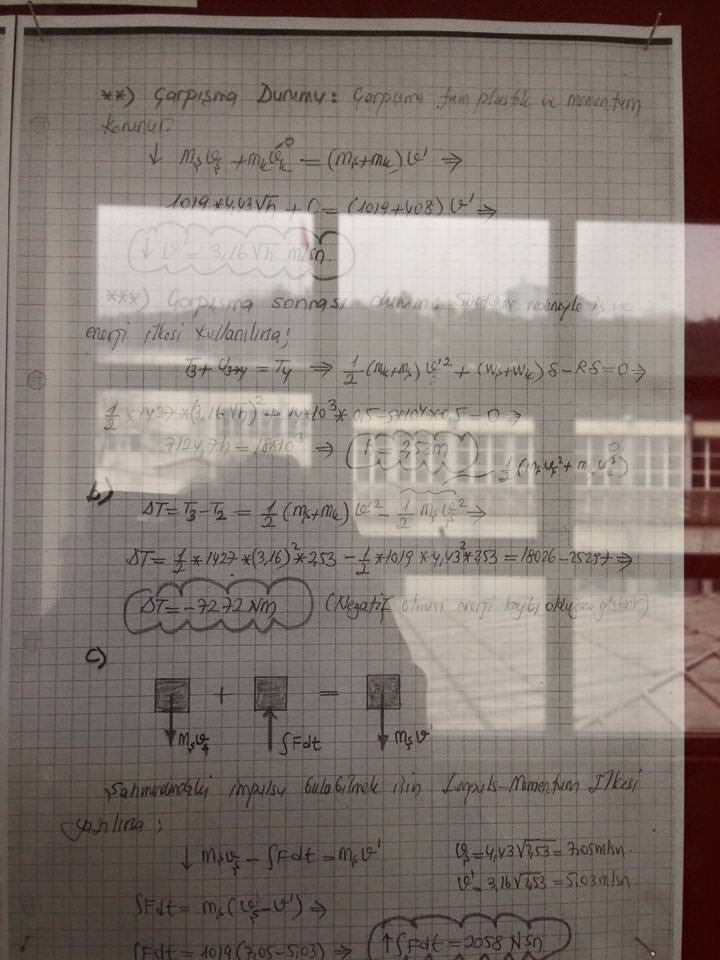 **) Çarpışma Durumu: Çarpışma tam plastik ve momentum
korunur.
↓ mşϑş + mkϑk⁰ = (mş+mk)ϑ' ⇒
1019*4,43√h + 0 = (1019+408)ϑ' ⇒
↓ ϑ' = 3,16√h m/sn
***) Çarpışma sonrası durum: iş ve
enerji ilkesi kullanılırsa;
T3 + U3→4 = T4 ⇒ 1/2 (mk+mş)ϑ'² + (Wş+Wk)δ − Rδ = 0 ⇒
1/2 *1427*(3,16√h)² + 14*10³*0,5 − 0,5 = 0 ⇒
7124,7h = 18*10³ ⇒ h = 2,53m
1/2(mşϑş²+mkϑk²)⁰
b)
ΔT = T3−T2 = 1/2 (mş+mk)ϑ'² − 1/2 mşϑş² ⇒
ΔT = 1/2 *1427*(3,16)²*2,53 − 1/2 *1019*4,43²*2,53 = 18026 − 25297 ⇒
ΔT = −7272 Nm (Negatif olması enerji kaybı olduğunu gösterir)
c)
+ =
mşϑş ∫Fdt mşϑ'
Şahmerdandaki impulsu bulabilmek için İmpuls-Momentum İlkesi
yazılırsa;
↓ mşϑş − ∫Fdt = mşϑ' ϑş = 4,43√2,53 = 7,05m/sn
ϑ' = 3,16√2,53 = 5,03m/sn
∫Fdt = mş(ϑş−ϑ') ⇒
∫Fdt = 1019(7,05−5,03) ⇒ ↑∫Fdt = 2058 Nsn